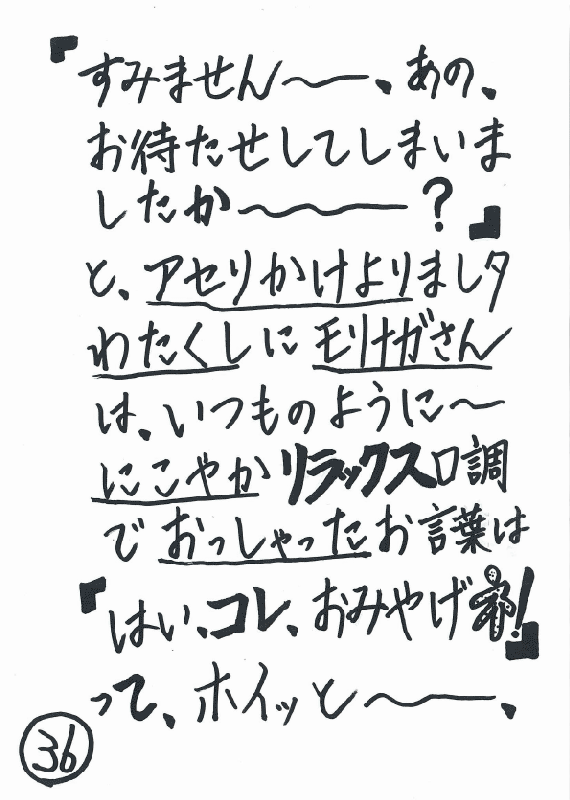 『すみません〜〜、あの、
お待たせしてしまいま
したか〜〜〜?』
と、アセリかけよりましタ
わたくしに モリナガさん
は、いつものように〜
にこやかリラックス口調
で おっしゃったお言葉は
『はい、コレ、おみやげ!』
って、ホイッと〜〜、
36